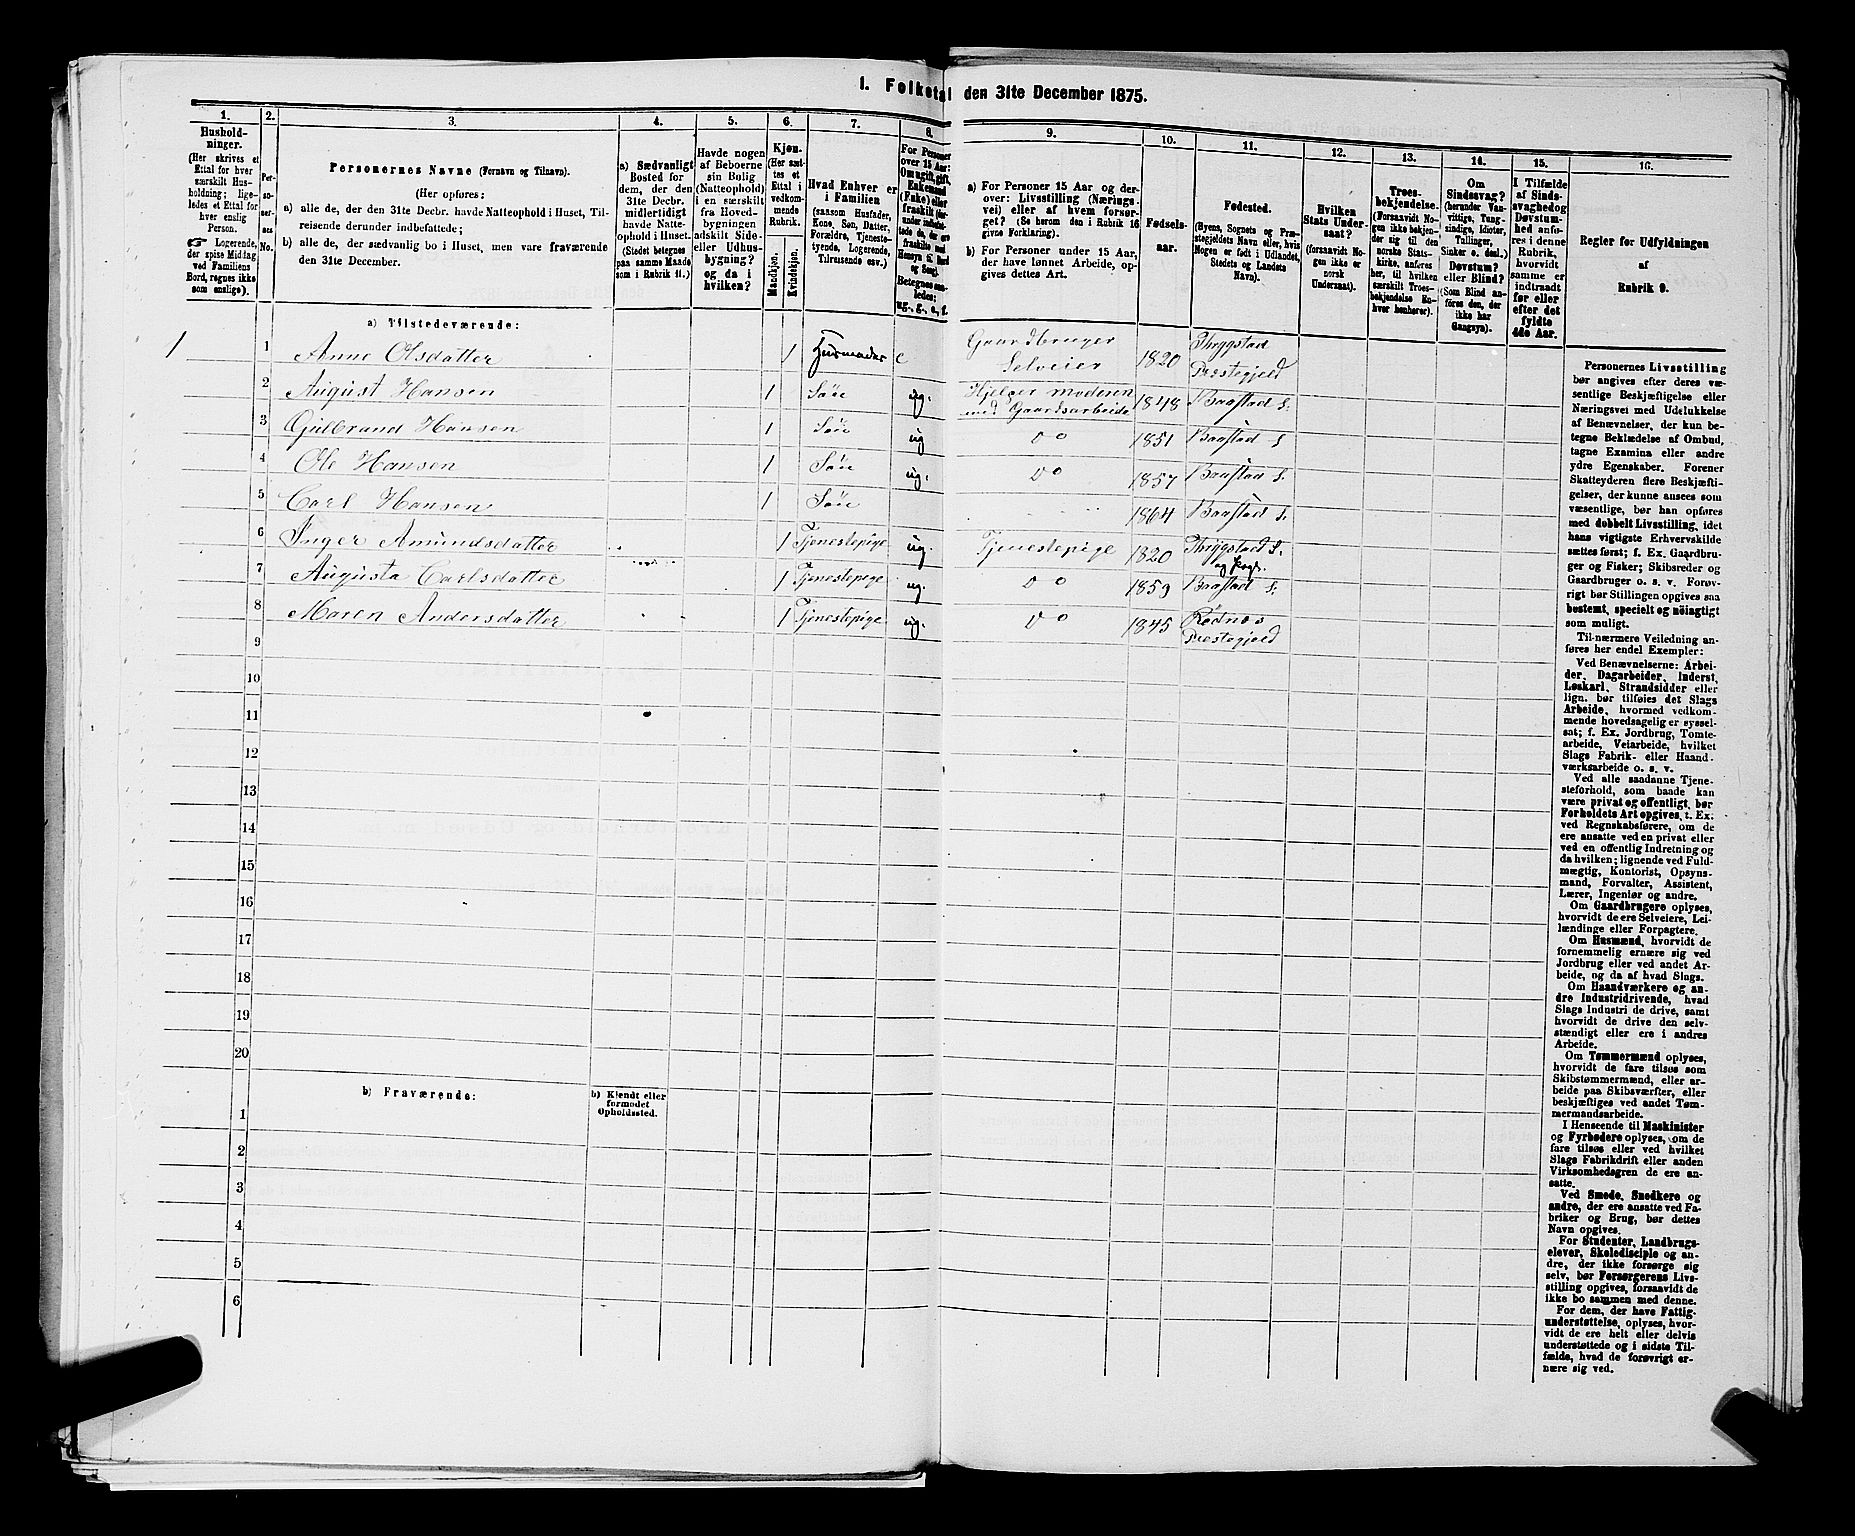 I. Folketal den 31te December 1875.
1. 2. 3. 4. 5. 6. 7. 8. 9. 10. 11. 12. 13. 14. 15. 16.
Hushold-
ninger.
(Her skrives et
Ettal for hver
særskilt Hus-
holdning; lige-
ledes et Ettal for
hver enslig
Person.
☞ Logerende,
der spise Middag
ved Familiens
Bord, regnes ikke
som enslige).
Per-
so-
ner-
nes
No.
Personernes Navne (Fornavn og Tilnavn).
(Her opføres:
a) alle de, der den 31te Decbr. havde Natteophold i Huset, Til-
reisende derunder indbefattede;
b) alle de, der sædvanlig bo i Huset, men vare fraværende
den 31te December.
a) Sædvanligt
Bosted for
dem, der den
31te Decbr.
midlertidigt
havde Natte-
ophold i Huset.
(Stedet betegnes
paa samme Maade
som i Rubrik 11.)
Havde nogen
af Beboerne
sin Bolig
(Natteophold)
i en særskilt
fra Hoved-
bygningen
adskilt Side-
eller Udhus-
bygning?
og da i
hvilken?
Kjøn.
(Her sæt-
tes et
Ettal i
vedkom-
mende
Rubrik.
Mandkjøn.
Kvindekjøn.
Hvad Enhver er
i Familien
(saasom Husfader,
Kone, Søn, Datter,
Forældre, Tjeneste-
tyende, Logerende,
Tilreisende osv.)
For Personer
over 15 Aar:
Om ugift, gift,
Enkemand
(Enke) eller
fraskilt
Betegnes saa-
ledes:
ug., g., e., f.
a) For Personer 15 Aar og der-
over: Livsstilling (Nærings-
vei) eller af hvem forsør-
get? (Se herom den i Rubrik 16
givne Forklaring).
b) For Personer under 15 Aar,
der have lønnet Arbeide, op-
gives dettes Art.
Fødsels-
aar.
Fødested.
(Byens, Sognets og Præ-
stegjeldets Navn eller, hvis
Nogen er født i Udlandet,
Stedets og Landets
Navn).
Hvilken
Stats Under-
saat?
(forsaavidt No-
gen ikke er
norsk
Undersaat).
Troes-
bekjendelse.
(Forsaavidt No-
gen ikke bekjen-
der sig til den
norske Stats-
kirke, anføres
her, til hvilken
særskilt Troes-
bekjendelse En-
hver henhører).
Om
Sindssvag?
(herunder Van-
vittige, Tung-
sindige, Idioter,
Tullinger,
Sinker o. desl.)
Døvstum?
eller Blind?
(Som Blind an-
føres den, der
ikke har
Gangsyn).
I Tilfælde
af Sinds-
svaghed og
Døvstum-
hed anfø-
res i denne
Rubrik,
hvorvidt
samme er
indtraadt
før eller
efter det
fyldte
4de Aar.
Regler for Udfyldningen
af
Rubrik 9.
a) Tilstedeværende:
1 1 Anne Olsdatter 1 Husmoder e Gaardbruger Selveier 1820 Thrygstad Prestegjeld
2 August Hansen 1 Søn ug. Hjelper moderen med Gaardsarbeide 1848 Baastad S.
3 Gulbrand Hansen 1 Søn ug do 1851 Baastad S.
4 Ole Hansen 1 Søn ug. do 1857 Baastad S.
5 Carl Hansen 1 Søn 1864 Baastad S.
6 Inger Amundsdatter 1 Tjenestepige ug. Tjenestepige 1820 Thrygstad S. og Pregj.
7 Augusta Carlsdatter 1 Tjenestepige ug. do 1859 Baastad S.
8 Maren Andersdatter 1 Tjenestepige ug. do 1845 Rødnes Prestegjeld
9
10
11
12
13
14
15
16
17
18
19
20
b) Fraværende: b) Kjendt eller
formodet
Opholdssted.
1
2
3
4
5
6
Personernes Livsstilling
bør angives efter deres væ-
sentlige Beskjæftigelse eller
Næringsvei med Udelukkelse
af Benævnelser, der kun be-
tegne Beklædelse af Ombud,
tagne Examina eller andre
ydre Egenskaber. Forener
Skatteyderen flere Beskjæfti-
gelser, der kunne ansees som
væsentlige, bør han opføres
med dobbelt Livsstilling, idet
hans vigtigste Erhvervskilde
sættes først; f. Ex. Gaardbru-
ger og Fisker; Skibsreder og
Gaardbruger o. s. v. Forøv-
rigt bør Stillingen opgives saa
bestemt, specielt og nöiagtigt
som muligt.
Til nærmere Veiledning an-
føres her endel Exempler:
Ved Benævnelserne: Arbei-
der, Dagarbeider, Inderst,
Løskarl, Strandsidder eller
lign. bør tilføies det Slags
Arbeide, hvormed vedkom-
mende hovedsagelig er syssel-
sat; f. Ex. Jordbrug, Tomte-
arbeide, Veiarbeide, hvilket
Slags Fabrik- eller Haand-
værksarbeide o. s. v.
Ved alle saadanne Tjene-
steforhold, som baade kan
være privat og offentligt, bør
Forholdets Art opgives, t. Ex.
ved Regnskabsførere, om de
ere ansatte ved en privat eller
ved en offentlig Indretning og
da hvilken; lignende ved Fuld-
mægtig, Kontorist, Opsyns-
mand, Forvalter, Assistent,
Lærer, Ingeniør og andre.
Om Gaardbrugere oplyses,
hvorvidt de ere Selveiere, Lei-
lændinge eller Forpagtere.
Om Husmænd, hvorvidt de
fornemmelig ernære sig ved
Jordbrug eller ved andet Ar-
beide, og da af hvad Slags.
Om Haandværkere og an-
dre Industridrivende, hvad
Slags Industri de drive, samt
hvorvidt de drive den selv-
stændigt eller ere i andres
Arbeide.
Om Tømmermænd oplyses,
hvorvidt de fare tilsøs som
Skibstømmermænd, eller ar-
beide paa Skibsværfter, eller
beskjæftiges ved andet Tøm-
mermandsarbeide.
I Henseende til Maskinister
og Fyrbødere oplyses, om de
fare tilsøs eller ved hvilket
Slags Fabrikdrift eller anden
Virksomhedsgren de ere an-
satte.
Ved Smede, Snedkere og
andre, der ere ansatte ved Fa-
briker og Brug, bør dettes
Navn opgives.
For Studenter, Landbrugs-
elever, Skoledisciple og an-
dre, der ikke forsørge sig
selv, bør Forsørgerens Livs-
stilling opgives, forsaavidt de
ikke bo sammen med denne.
For dem, der have Fattig-
understøttelse, oplyses, hvor-
vidt de ere helt eller delvis
understøttede og i sidste Til-
fælde, hvad de forøvrigt er-
nære sig ved.